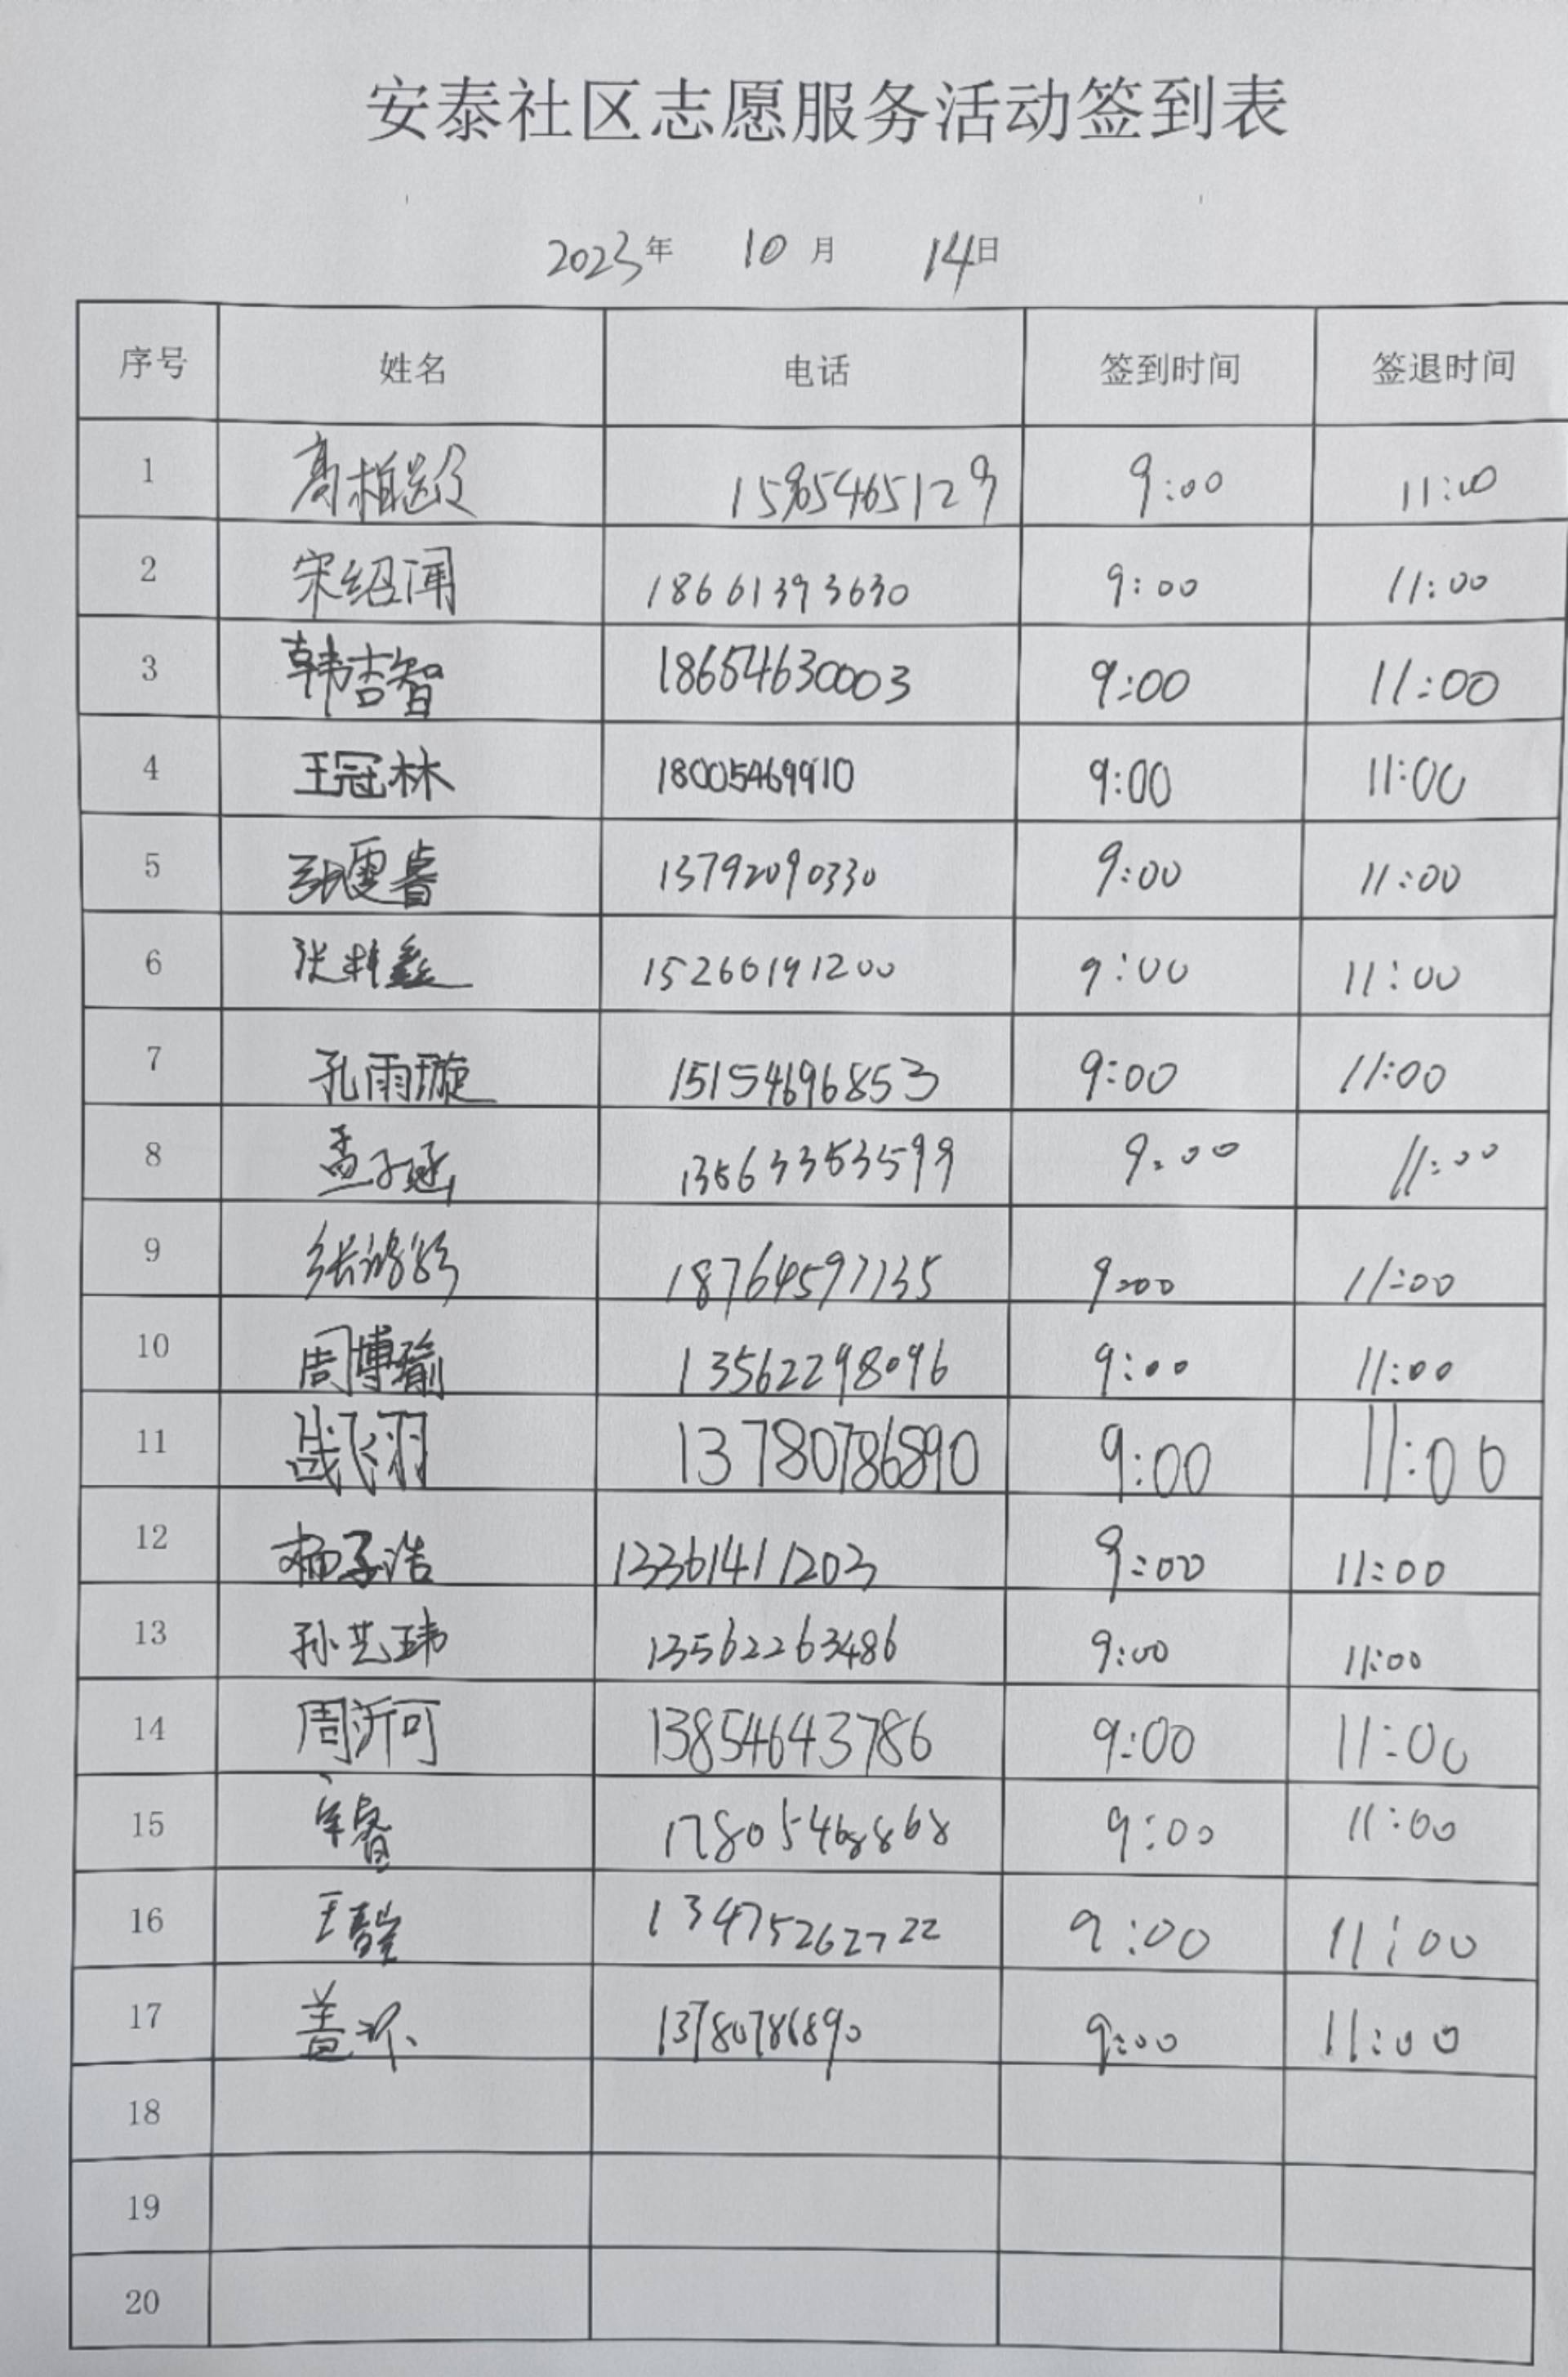 安泰社区志愿服务活动签到表
2023年 10月 14日
序号 姓名 电话 签到时间 签退时间
1 高相 15865465129 9:00 11:00
2 宋绍闻 18661393630 9:00 11:00
3 韩吉智 18654630003 9:00 11:00
4 王冠林 18005469910 9:00 11:00
5 张雯睿 13792090330 9:00 11:00
6 张梓鑫 15266191200 9:00 11:00
7 孔雨璇 15154696853 9:00 11:00
8 孟子涵 13563353599 9:00 11:00
9 张 18764597135 9:00 11:00
10 周博瑜 13562298096 9:00 11:00
11 战飞羽 13780786890 9:00 11:00
12 杨子浩 13361411203 9:00 11:00
13 孙艺玮 13562263486 9:00 11:00
14 周沂可 13854643786 9:00 11:00
15 睿 17805468868 9:00 11:00
16 王 13475262722 9:00 11:00
17 盖 13780786890 9:00 11:00
18
19
20